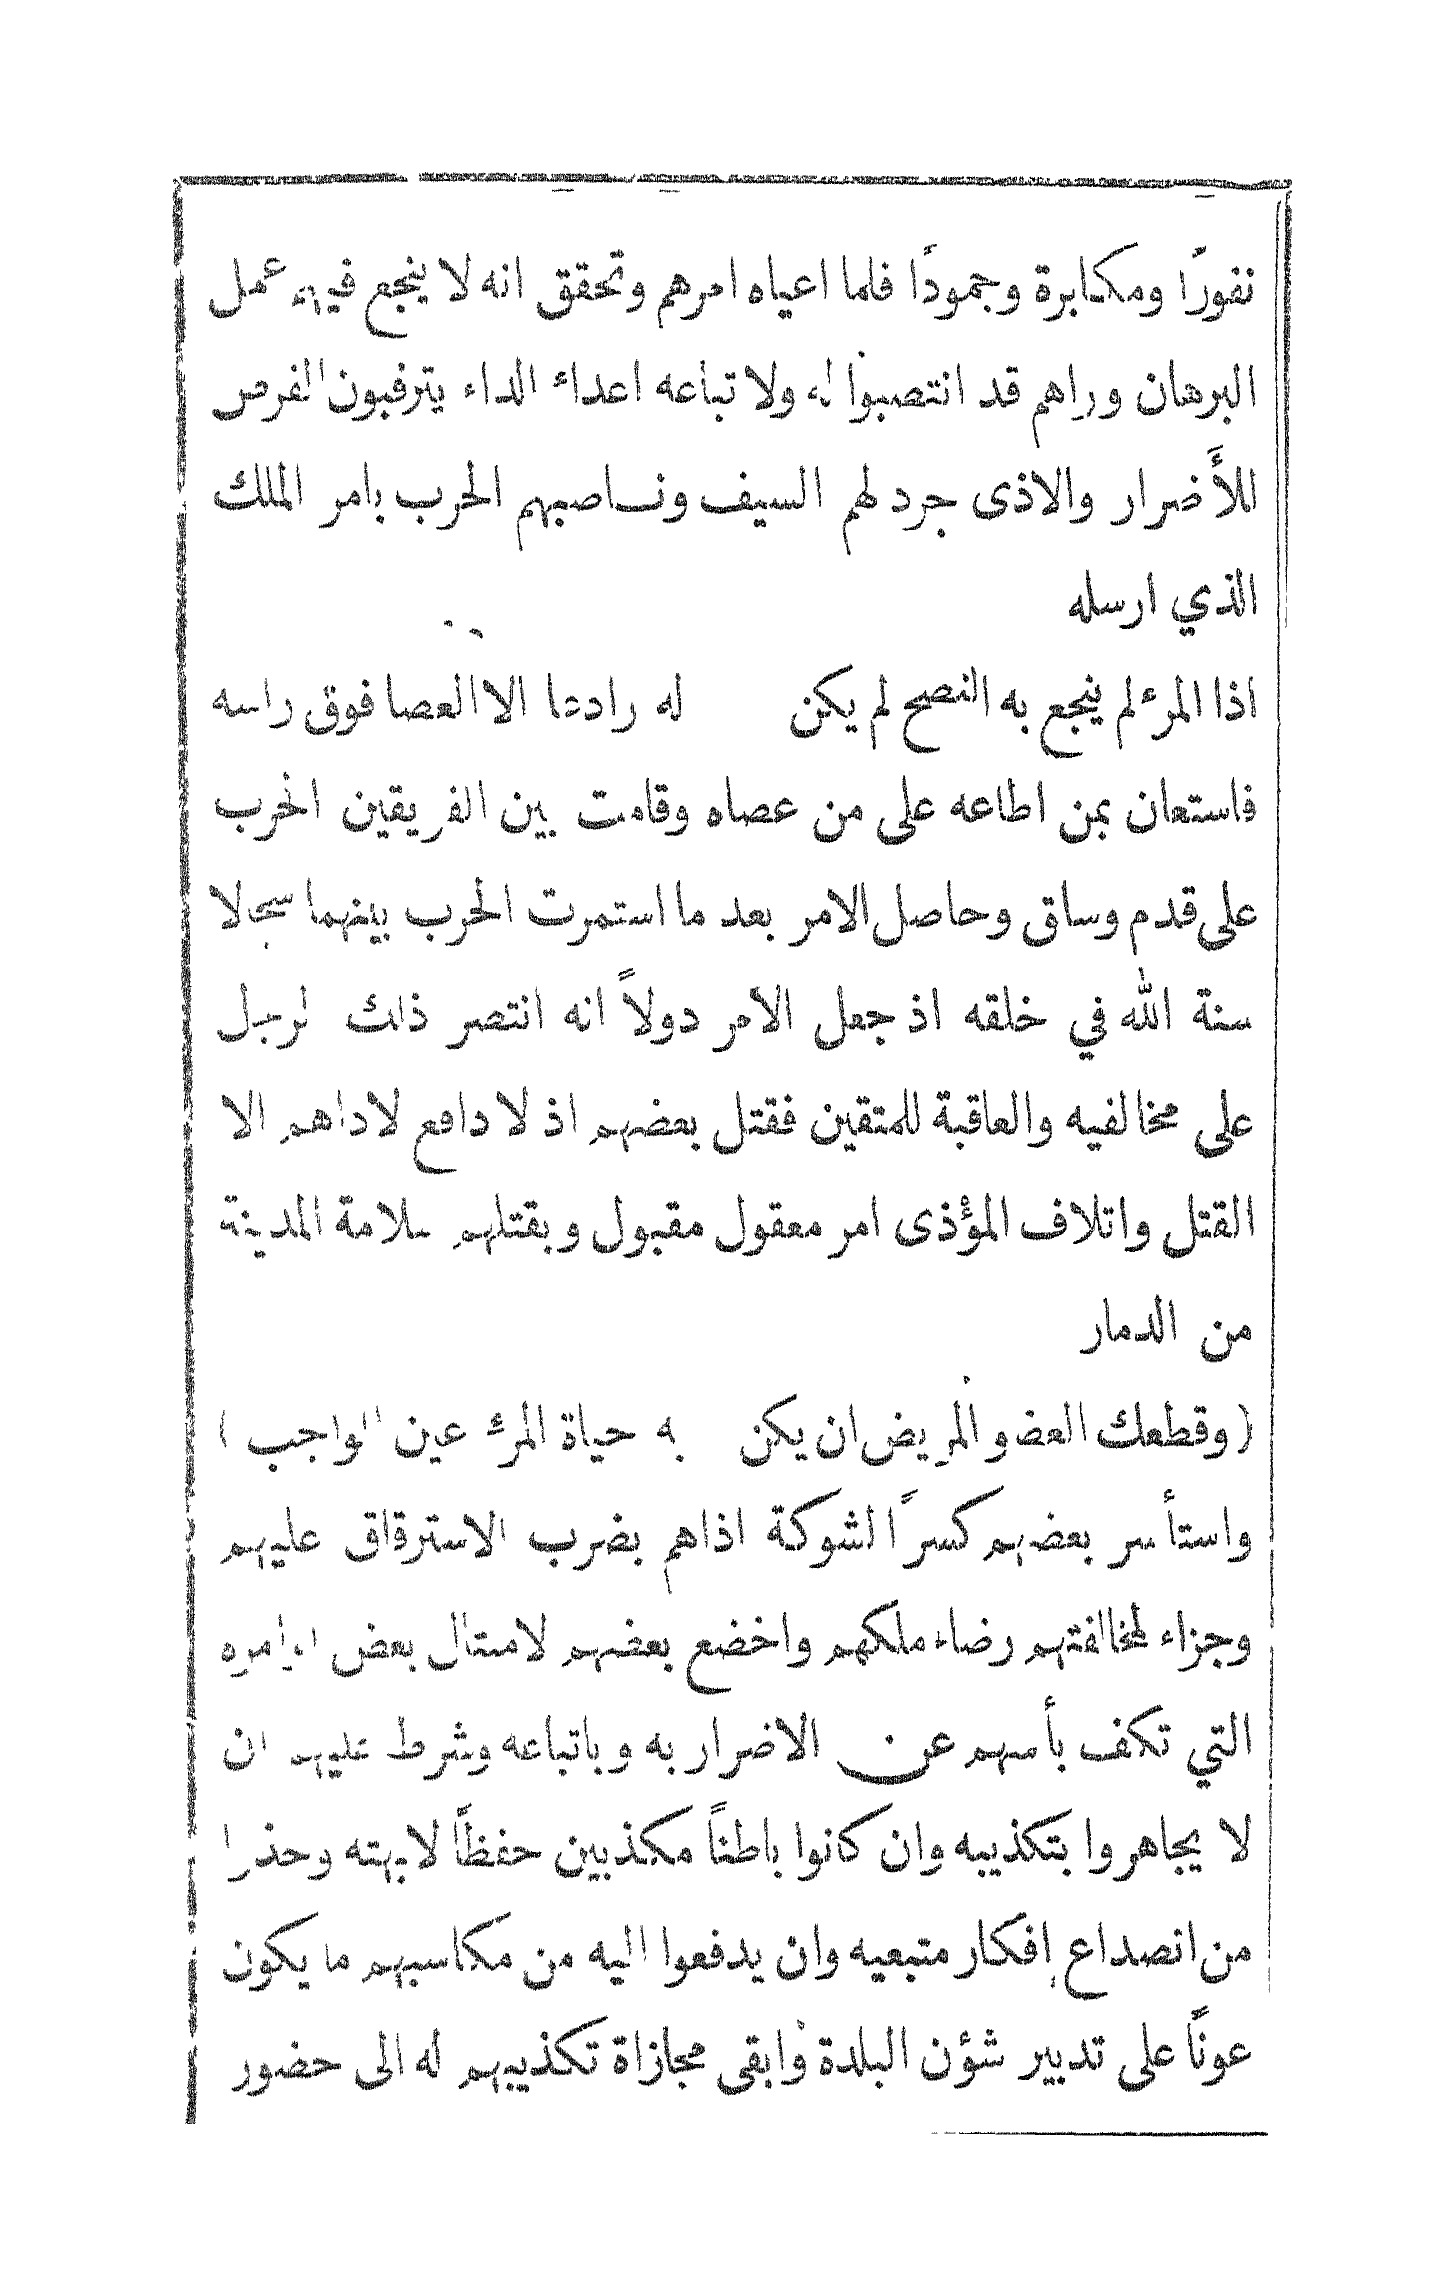 نفورًا ومكابرة وجمودًا فلما اعياه امرهم وتحقق انه لا ينجع فيهم عمل
البرهان وراهم قد انتصبوا له ولا تباعه اعداء الداء يترقبون الفرص
للأضرار والاذى جرد لهم السيف وناصبهم الحرب بامر الملك
الذي ارسله
اذا المرء لم ينجع به النصح لم يكن له رادعا الا العصا فوق راسه
فاستعان بمن اطاعه على من عصاه وقامت بين الفريقين الحرب
على قدم وساق وحاصل الامر بعد ما استمرت الحرب بينهما سجالا
سنة الله في خلقه اذ جعل الامر دولاً انه انتصر ذلك الرجل
على مخالفيه والعاقبة للمتقين فقتل بعضهم اذ لا دافع لاداهم الا
القتل واتلاف المؤذى امر معقول مقبول وبقتلهم سلامة المدينة
من الدمار
(وقطعك العضو المريض ان يكن به حياة المرء عين الواجب)
واستأسر بعضهم كسرًا لشوكة اذاهم بضرب الاسترقاق عليهم
وجزاء لمخالفتهم رضاء ملكهم واخضع بعضهم لامتثال بعض اوامره
التي تكف بأسهم عن الاضرار به وباتباعه وشرط عليهم ان
لا يجاهروا بتكذيبه وان كانوا باطناً مكذبين حفظاً لابهته وحذرا
من انصداع إفكار متبعيه وان يدفعوا اليه من مكاسبهم ما يكون
عونًا على تدبير شؤن البلدة وابقى مجازاة تكذيبهم له الى حضور